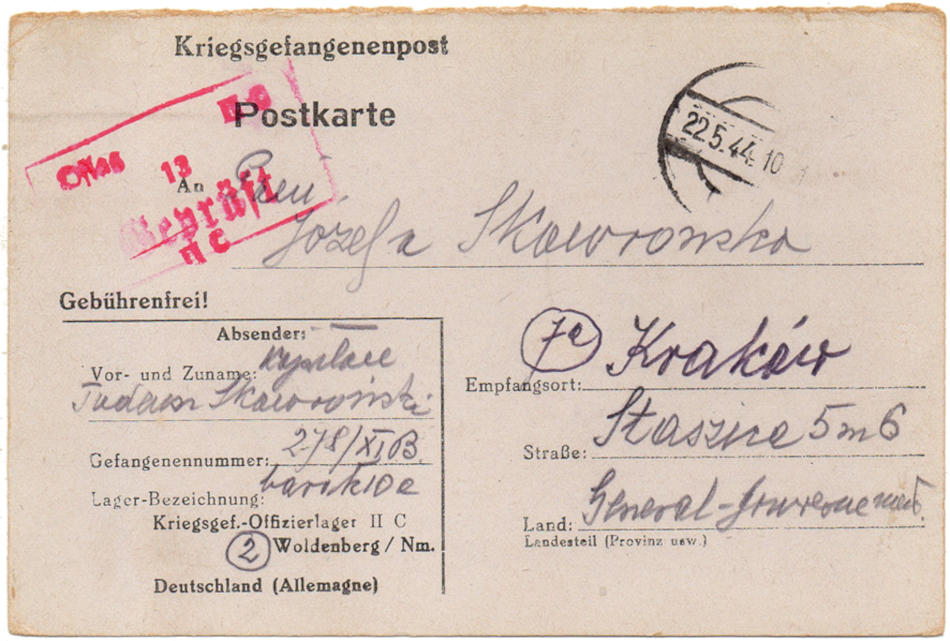 Kriegsgefangenenpost
Postkarte
22.5.44.10
Oflag 13
Geprüft
II C
An
Józefa Skoworońska
Gebührenfrei!
Absender:
Vor- und Zuname:
Tadeusz Skoworoński
Gefangenennummer: 278/XI B
Lager-Bezeichnung: barak 10a
Kriegsgef.-Offizierlager II C
2 Woldenberg / Nm.
Deutschland (Allemagne)
Empfangsort: Kraków
Straße: Staszica 5 m 6
Land: General-Gouvernement
Landesteil (Provinz usw.)